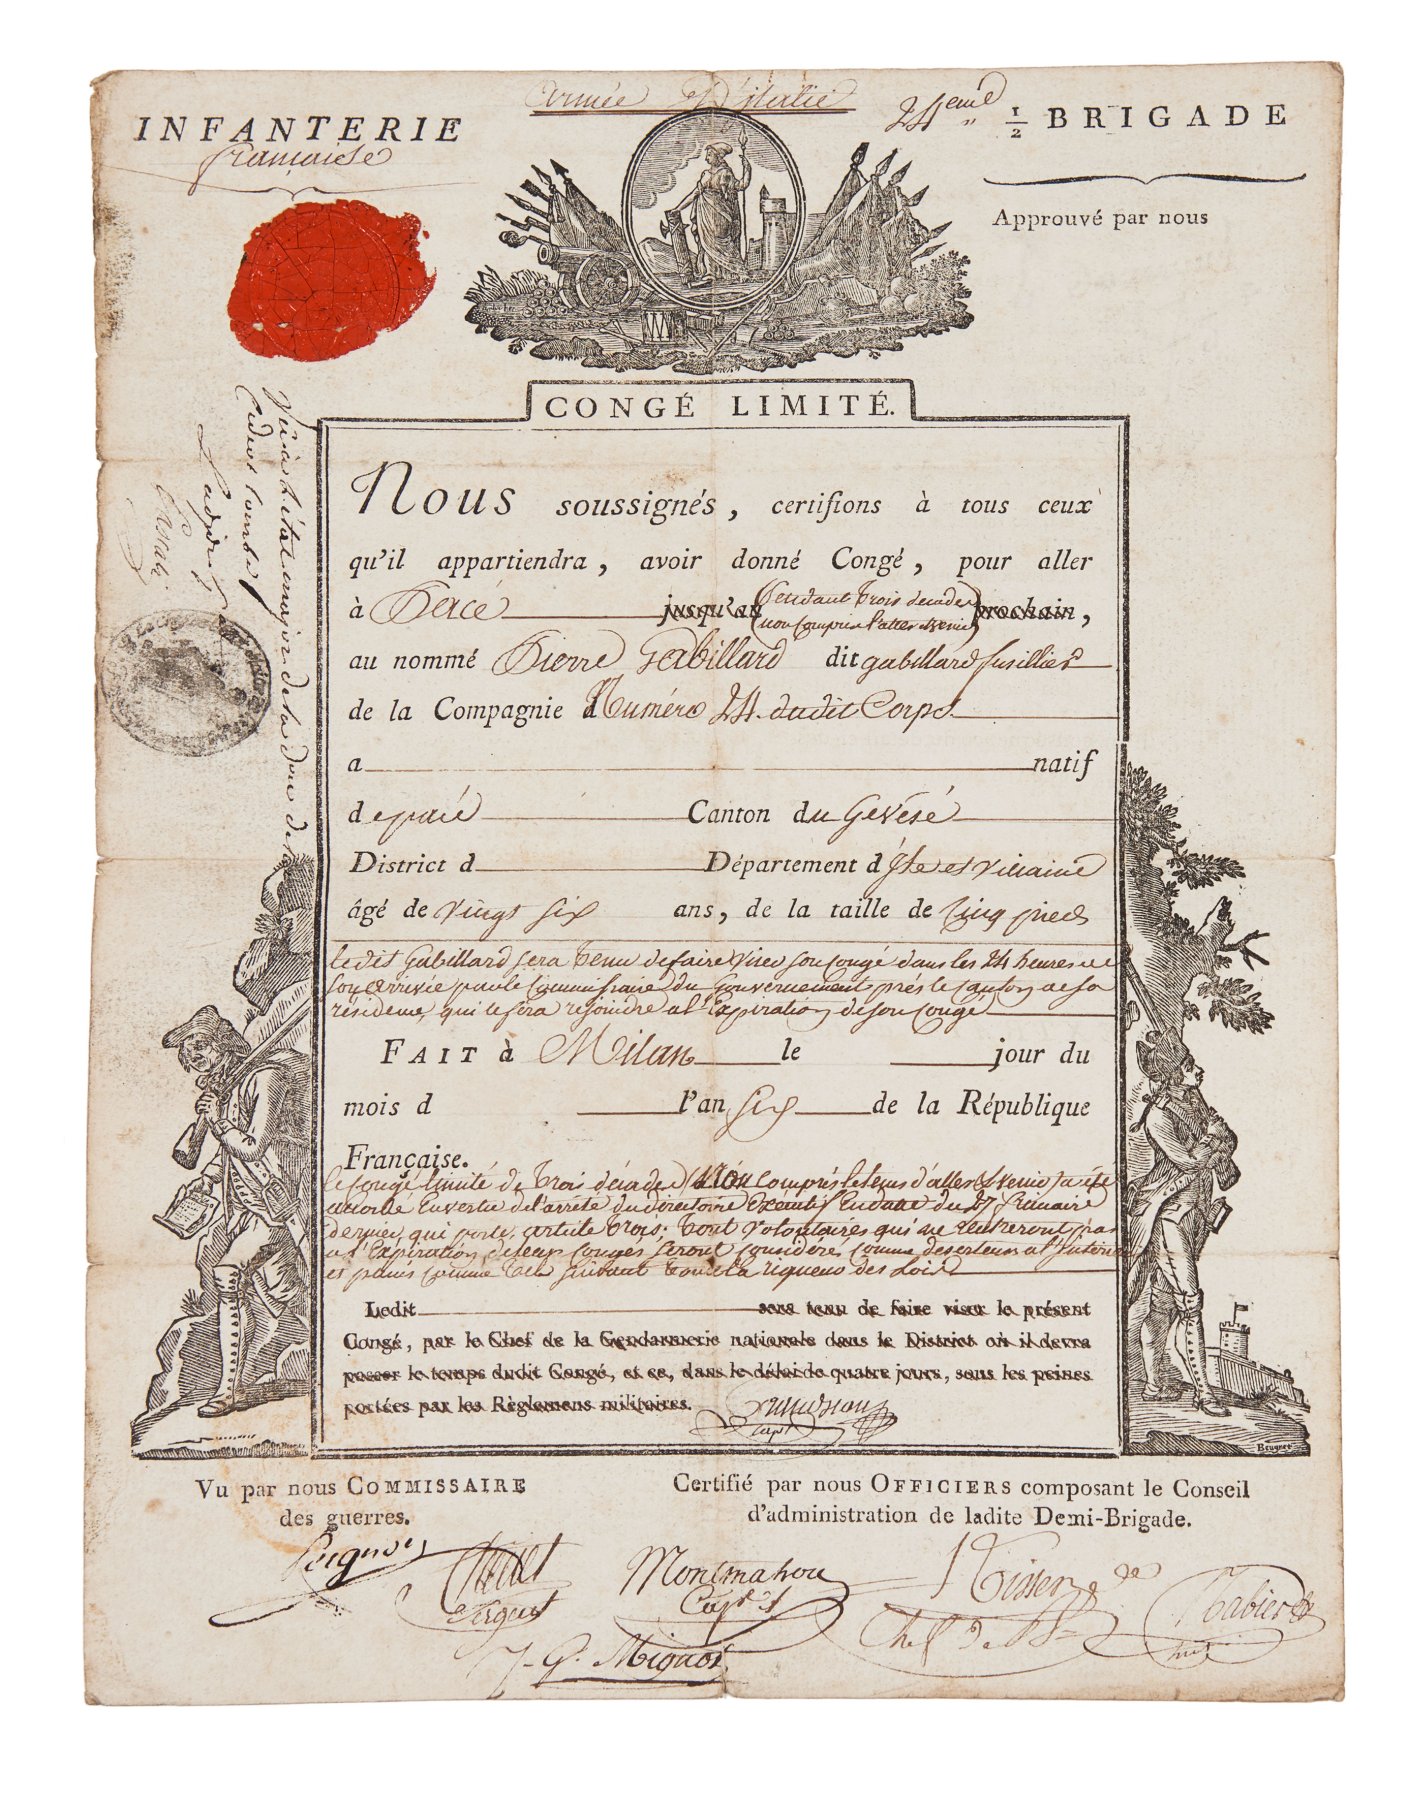 Armée D'italie
INFANTERIE
française
24eme 1/2 BRIGADE
Approuvé par nous
CONGÉ LIMITÉ.
Nous soussignés, certifions à tous ceux
qu'il appartiendra, avoir donné Congé, pour aller
à jusqu'au pendant trois decades prochain,
non compris l'aller et venir
au nommé Pierre Gabillard dit gabillard fusillier
de la Compagnie Numéro 24 dudit Corps
a natif
de Canton du Gévésé
District d Département d'Ile et Vilaine
âgé de vingt six ans, de la taille de Cinq pieds
ledit Gabillard sera tenu de faire viser son congé dans les 24 heures de
son arrivée par le Commissaire du Gouvernement près le Canton de sa
résidence, qui le fera rejoindre a l'Expiration de son Congé
FAIT à Milan le jour du
mois d l'an six de la République
Française.
le congé limité de trois décades non compris le tems d'aller & venir a été
accordé En vertu de l'arrêté du directoire Exécutif En date du 27 frimaire
dernier, qui porte, article trois. tout volontaires qui ne rentreront pas
a l'Expiration de leur congés seront considérés comme deserteurs a l'Interieur
et punis comme tels suivant toute la rigueur des Loix
Ledit sera tenu de faire viser le présent
Congé, par le Chef de la Gendarmerie nationale dans le District où il devra
passer le temps dudit Congé, et ce, dans le délai de quatre jours, sous les peines
portées par les Règlemens militaires.
capt
Beugnet
Vu par nous COMMISSAIRE
des guerres.
Certifié par nous OFFICIERS composant le Conseil
d'administration de ladite Demi-Brigade.
Sergent
Capt
Chef de
J. G. Mignot
Vu à l'état major de la
L'adjud